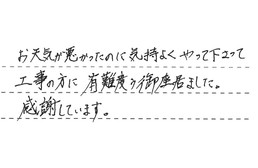 お天気が悪かったのに気持よくやって下さって
工事の方に有難度う御座居ました。
感謝しています。